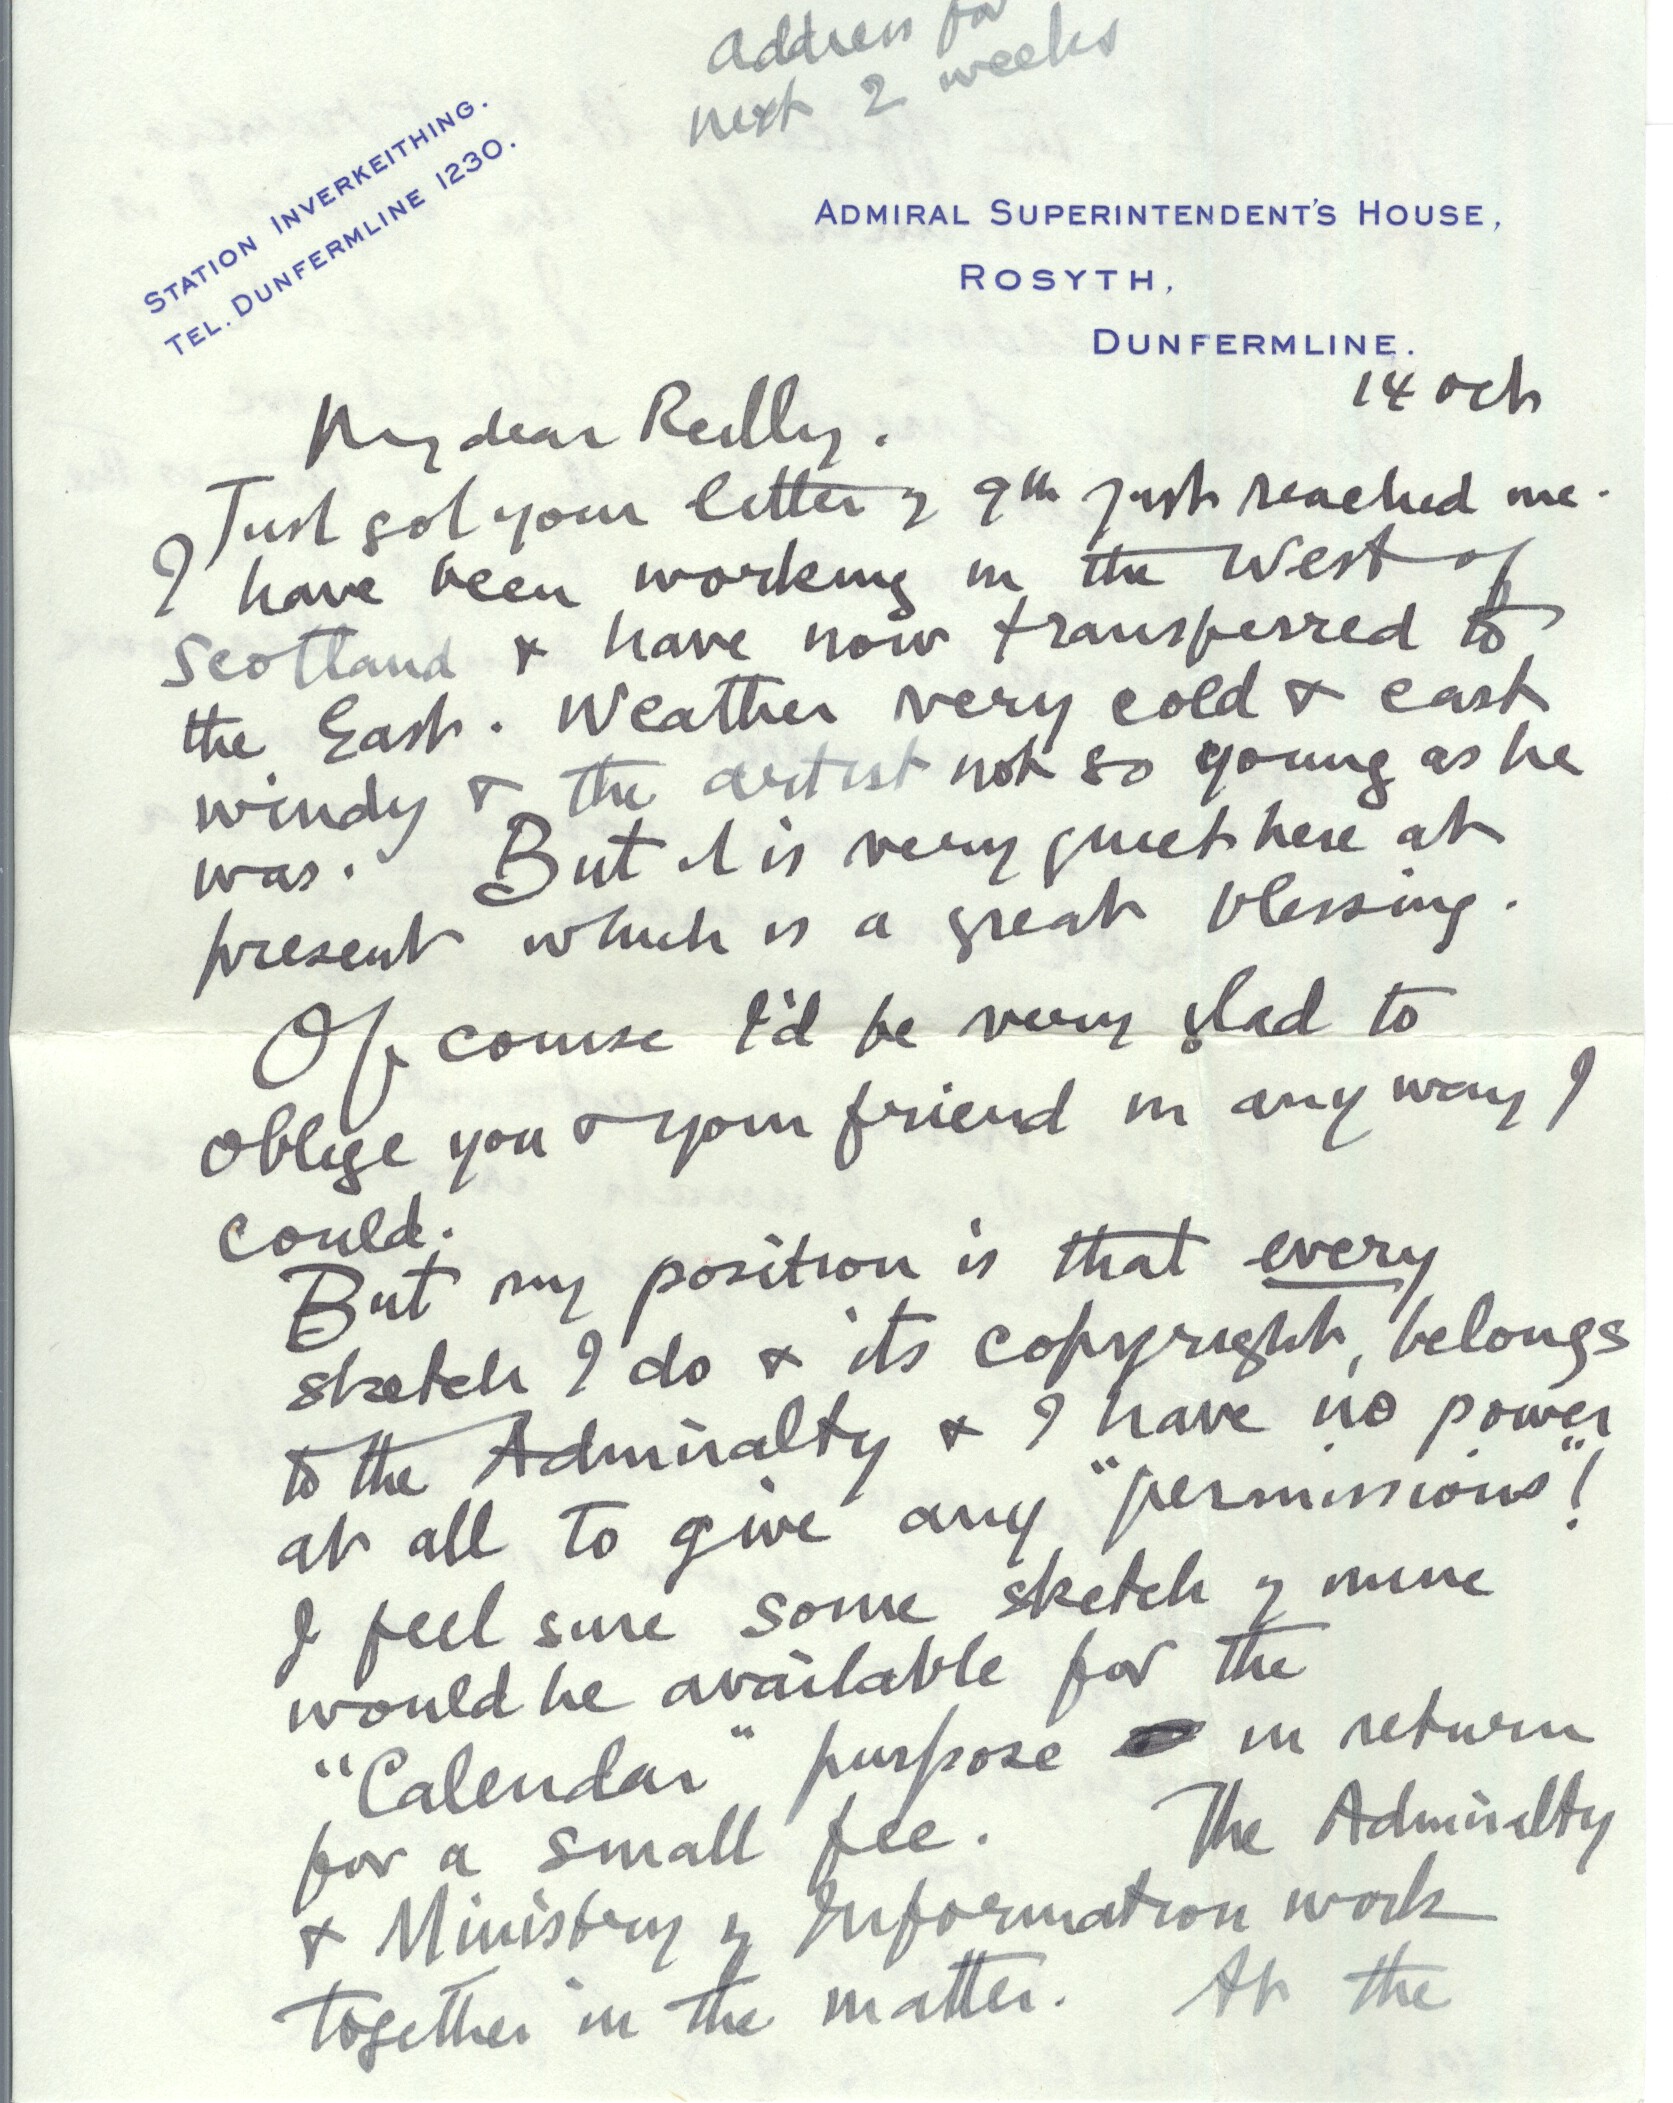 address for
next 2 weeks
STATION INVERKEITHING.
TEL. DUNFERMLINE 1230.
ADMIRAL SUPERINTENDENT'S HOUSE,
ROSYTH,
DUNFERMLINE.
14 Oct
My dear Reilly.
Just got your letter of 9th just reached me.
I have been working in the West of
Scotland & have now transferred to
the East. Weather very cold & east
windy & the artist not so young as he
was. But it is very quiet here at
present which is a great blessing.
Of course I'd be very glad to
oblige you & your friend in any way I
could.
But my position is that every
sketch I do & its copyright, belongs
to the Admiralty & I have no power
at all to give any "permissions"!
I feel sure some sketch of mine
would be available for the
"Calendar" purpose in return
for a small fee. The Admiralty
& Ministry of Information work
together in the matter. At the